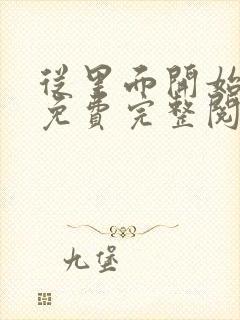 從里而開始
免費完整閱
九堡